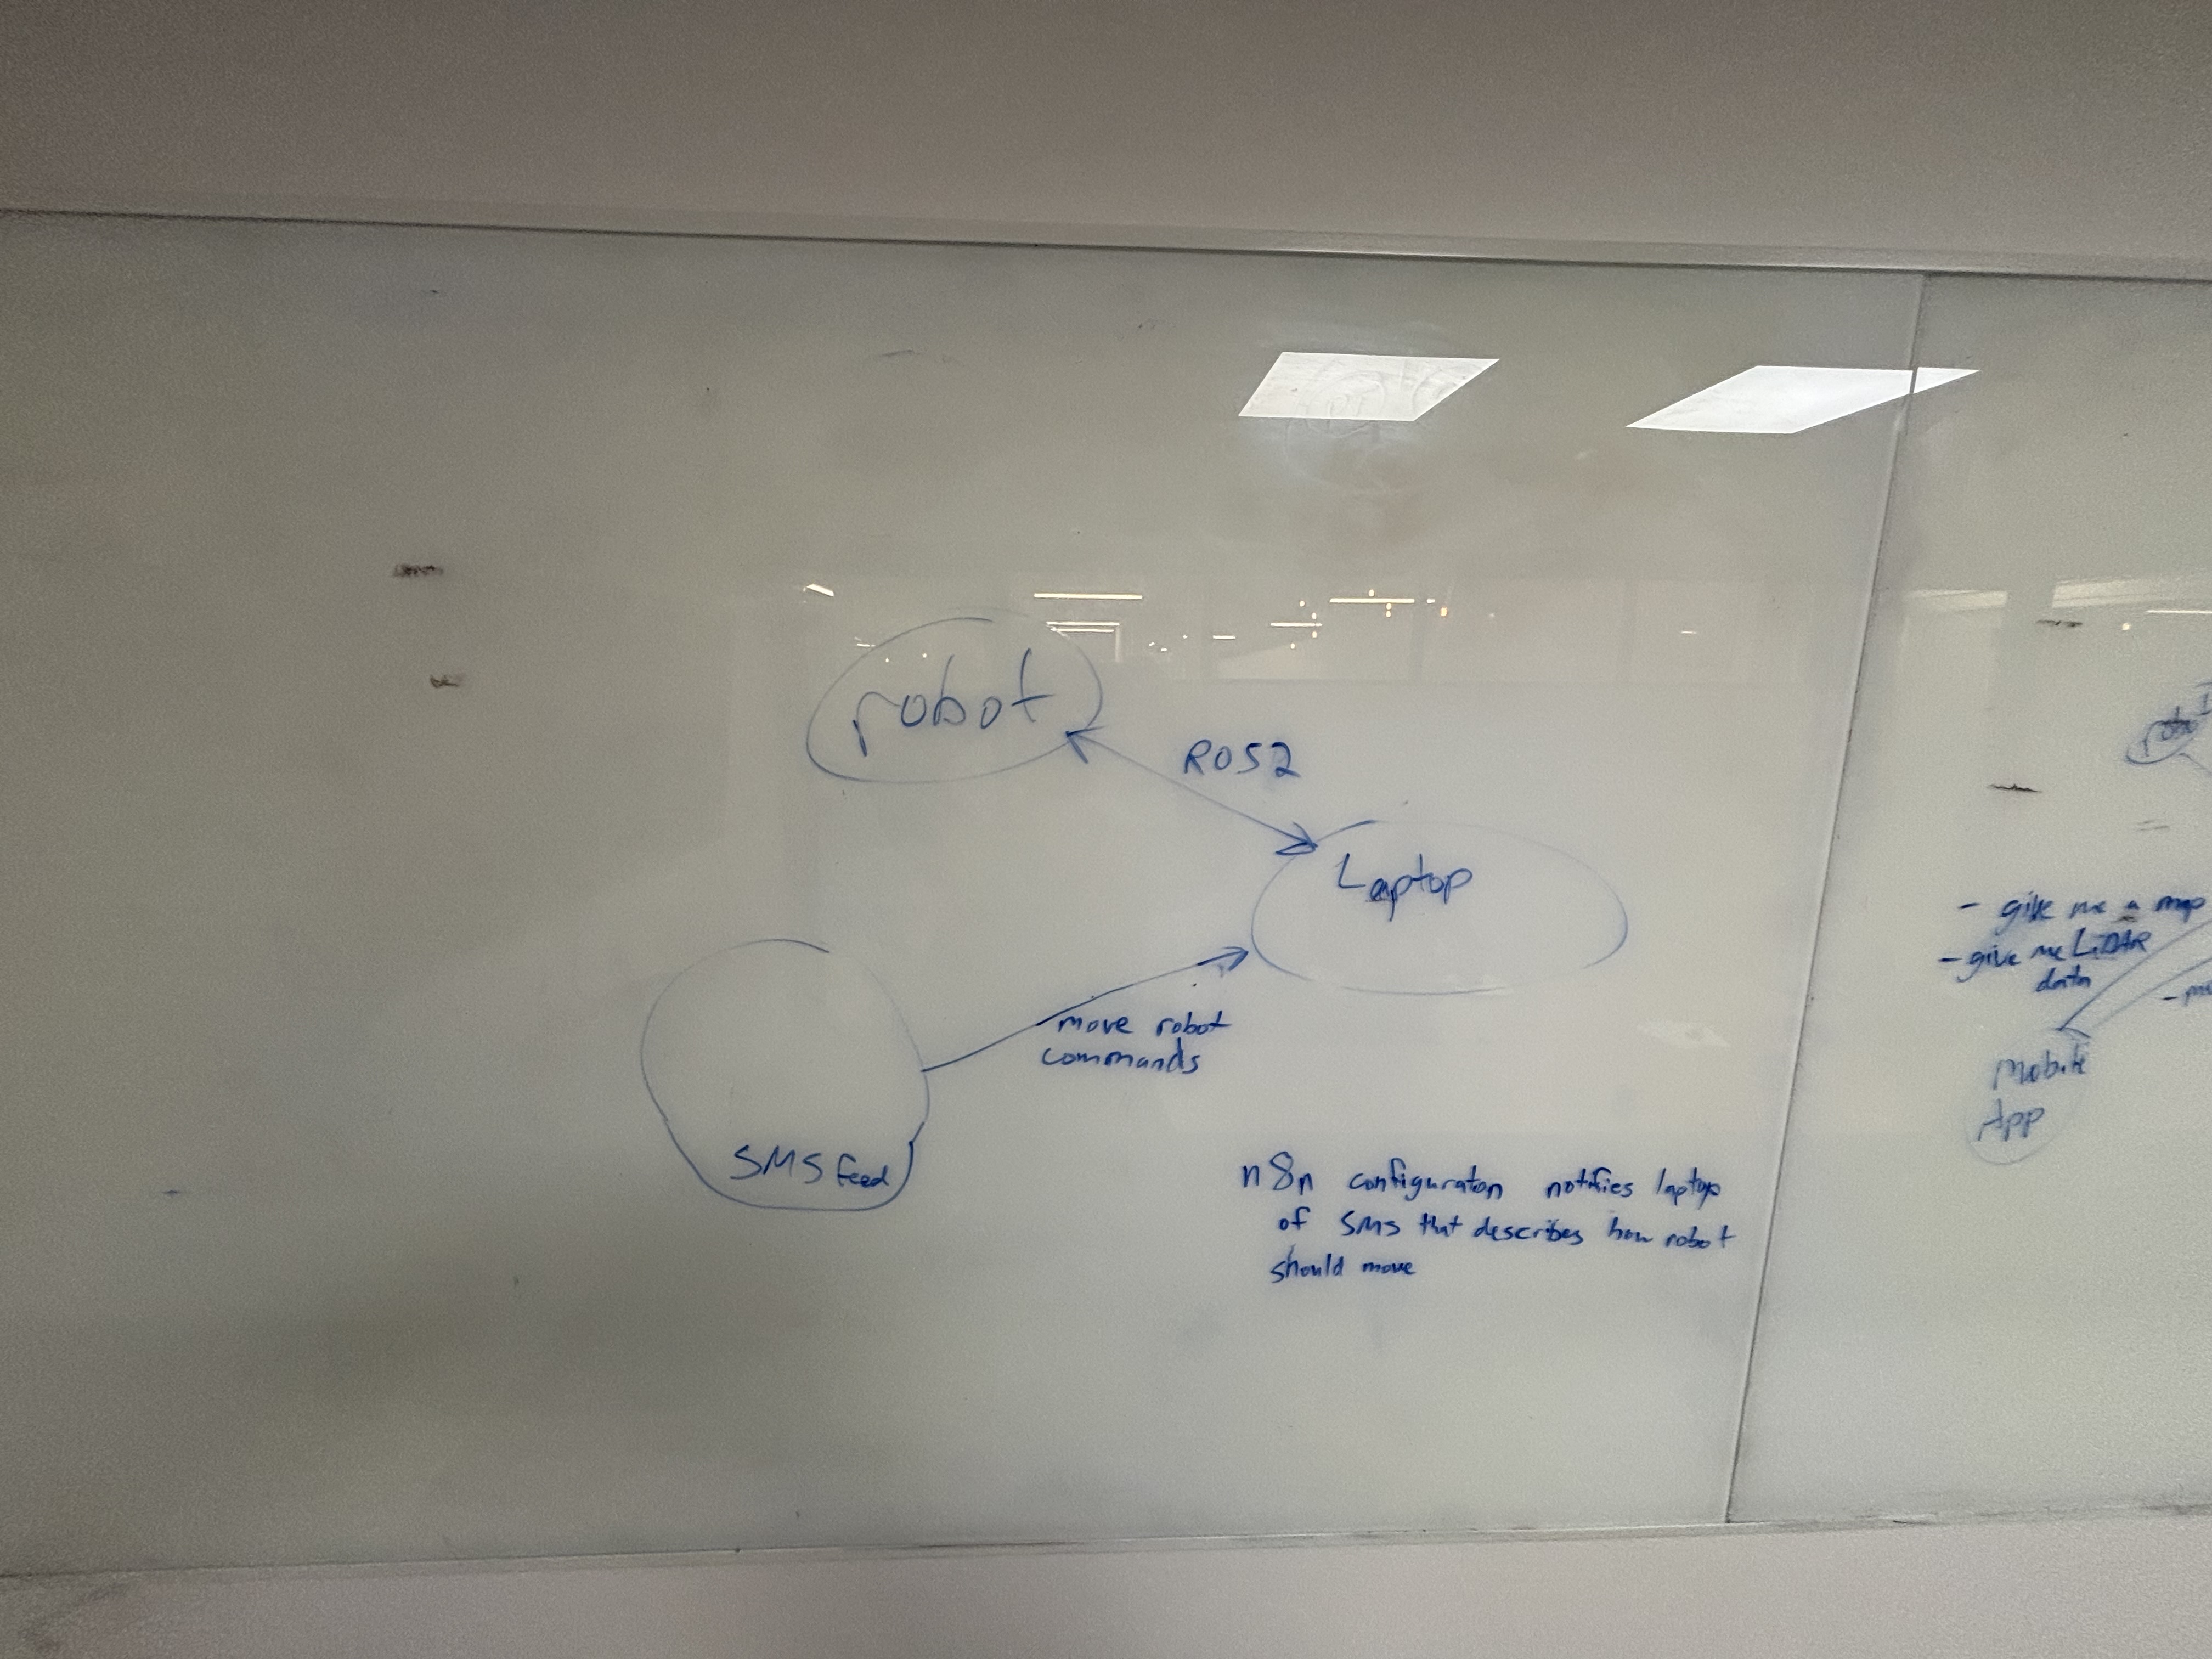 robot
ROS2
Laptop
move robot
commands
SMS feed
n8n configuraton notifies laptop
of SMS that describes how robot
should move
- give me a map
- give me LiDAR
data
Mobile
App